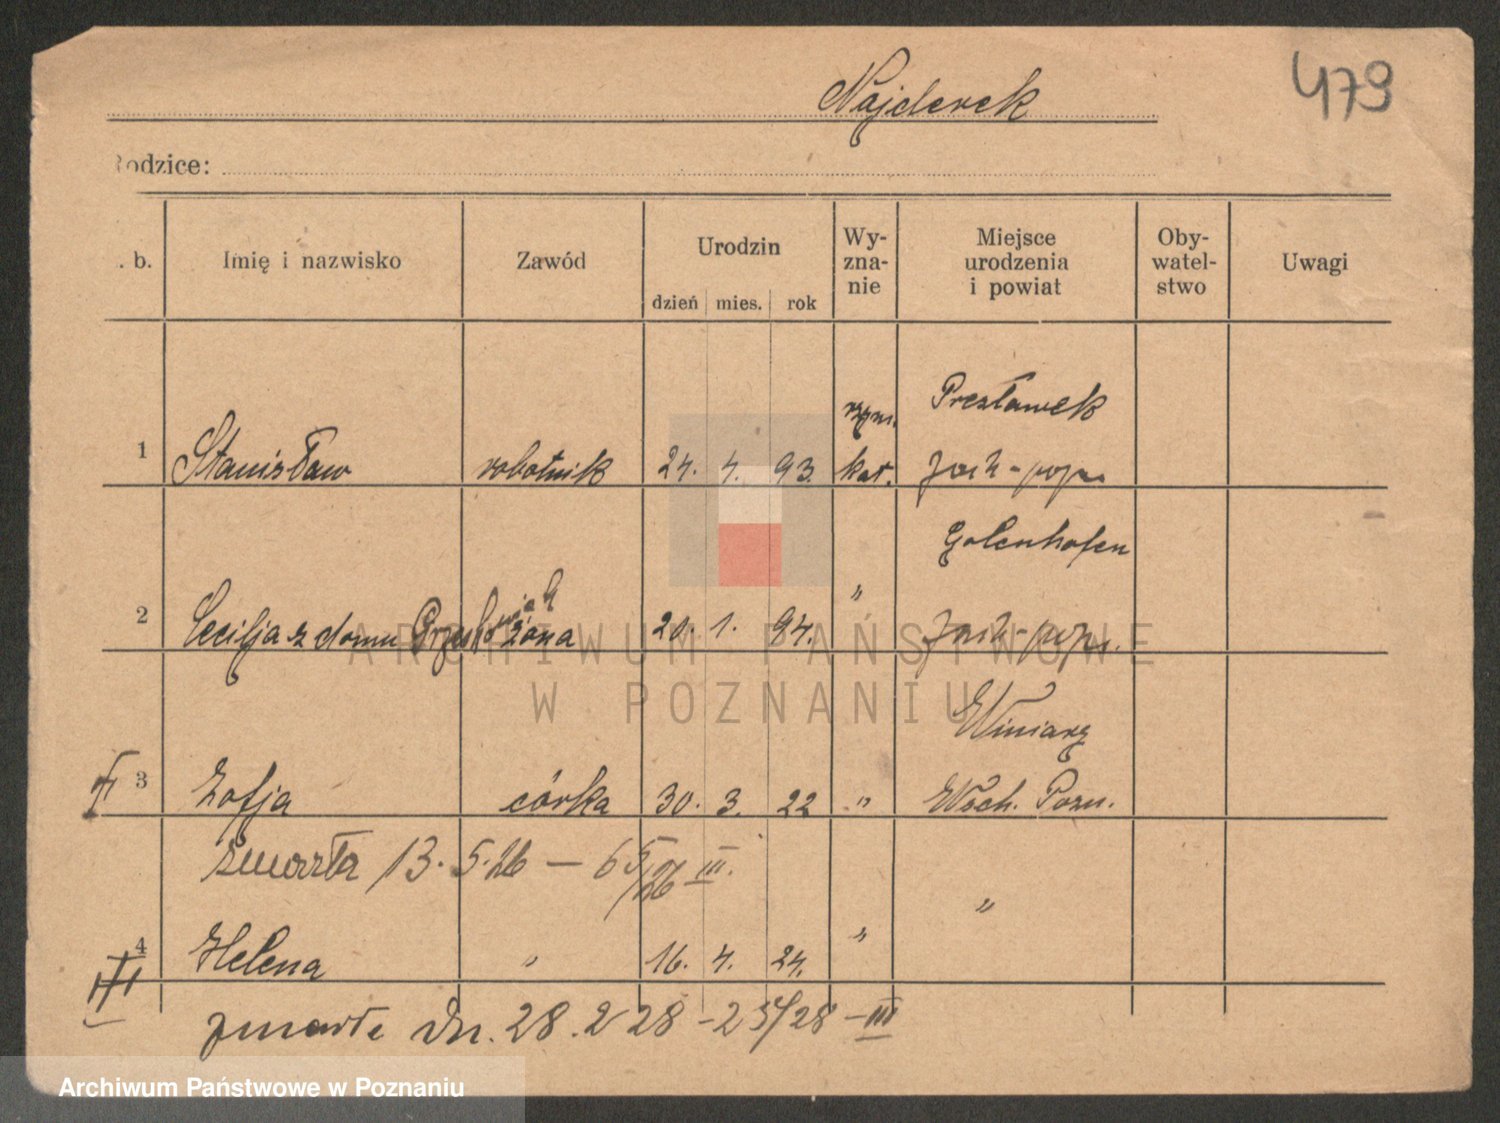 Najderek
479
Rodzice:
. b.
Imię i nazwisko
Zawód
Urodzin
dzień mies. rok
Wy-
zna-
nie
Miejsce
urodzenia
i powiat
Oby-
watel-
stwo
Uwagi
rzym. Przeławek
1 Stanisław robotnik 24. 4. 93. kat.
Golenhofen
2 Cecilja z domu Grześkowiak żona " 20. 1. 94.
Winiary
3 Zofja córka 30. 3. 22 " Wsch. Pozn.
zmarła 13.5.26 — 65/26 III.
4 Helena " 16. 4. 24. " "
zmarła dn. 28.2 28 – 25/28 – III
ARCHIWUM PAŃSTWOWE
W POZNANIU
Archiwum Państwowe w Poznaniu